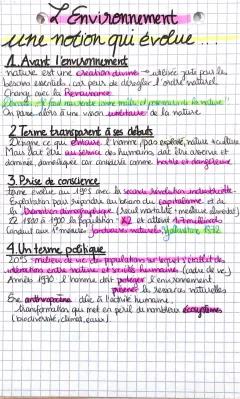 L'Environnement
une notion qui évolue...
1. Avant l'environnement
nature est une création divine → utilisée juste pour les
besoins essentiels, car peur de dérégler l'ordre naturel
Change avec la Renaissance
de la nature
On passe alors à une vision utilitaire de la nature
2. Terme transparent à ses débuts
Désigne ce qui entoure l'homme, pas exploité, nature ≠ culture
Mais doit être au service des humains, doit être asservie et
dominée, domestiquée car considérée comme hostile et dangereuse
3. Prise de conscience
terme évolue au avec la seconde révolution industrielle
Exploitation pour répondre au besoin du capitalisme et de
la transition démographique (recul mortalité + meilleure alimentation)
la population x2 et atteint
Conduit aux 1ères mesures
4. Un terme politique
milieu de vie des populations sur lequel s'établit des
interactions entre nature et sociétés humaines (cadre de vie)
Années 1970 l'homme doit protéger l'environnement,
préserver les ressources naturelles
Ère anthropocène due à l'activité humaine,
transformation qui met en péril de nombreux écosystèmes
(biodiversité, climat, eaux).